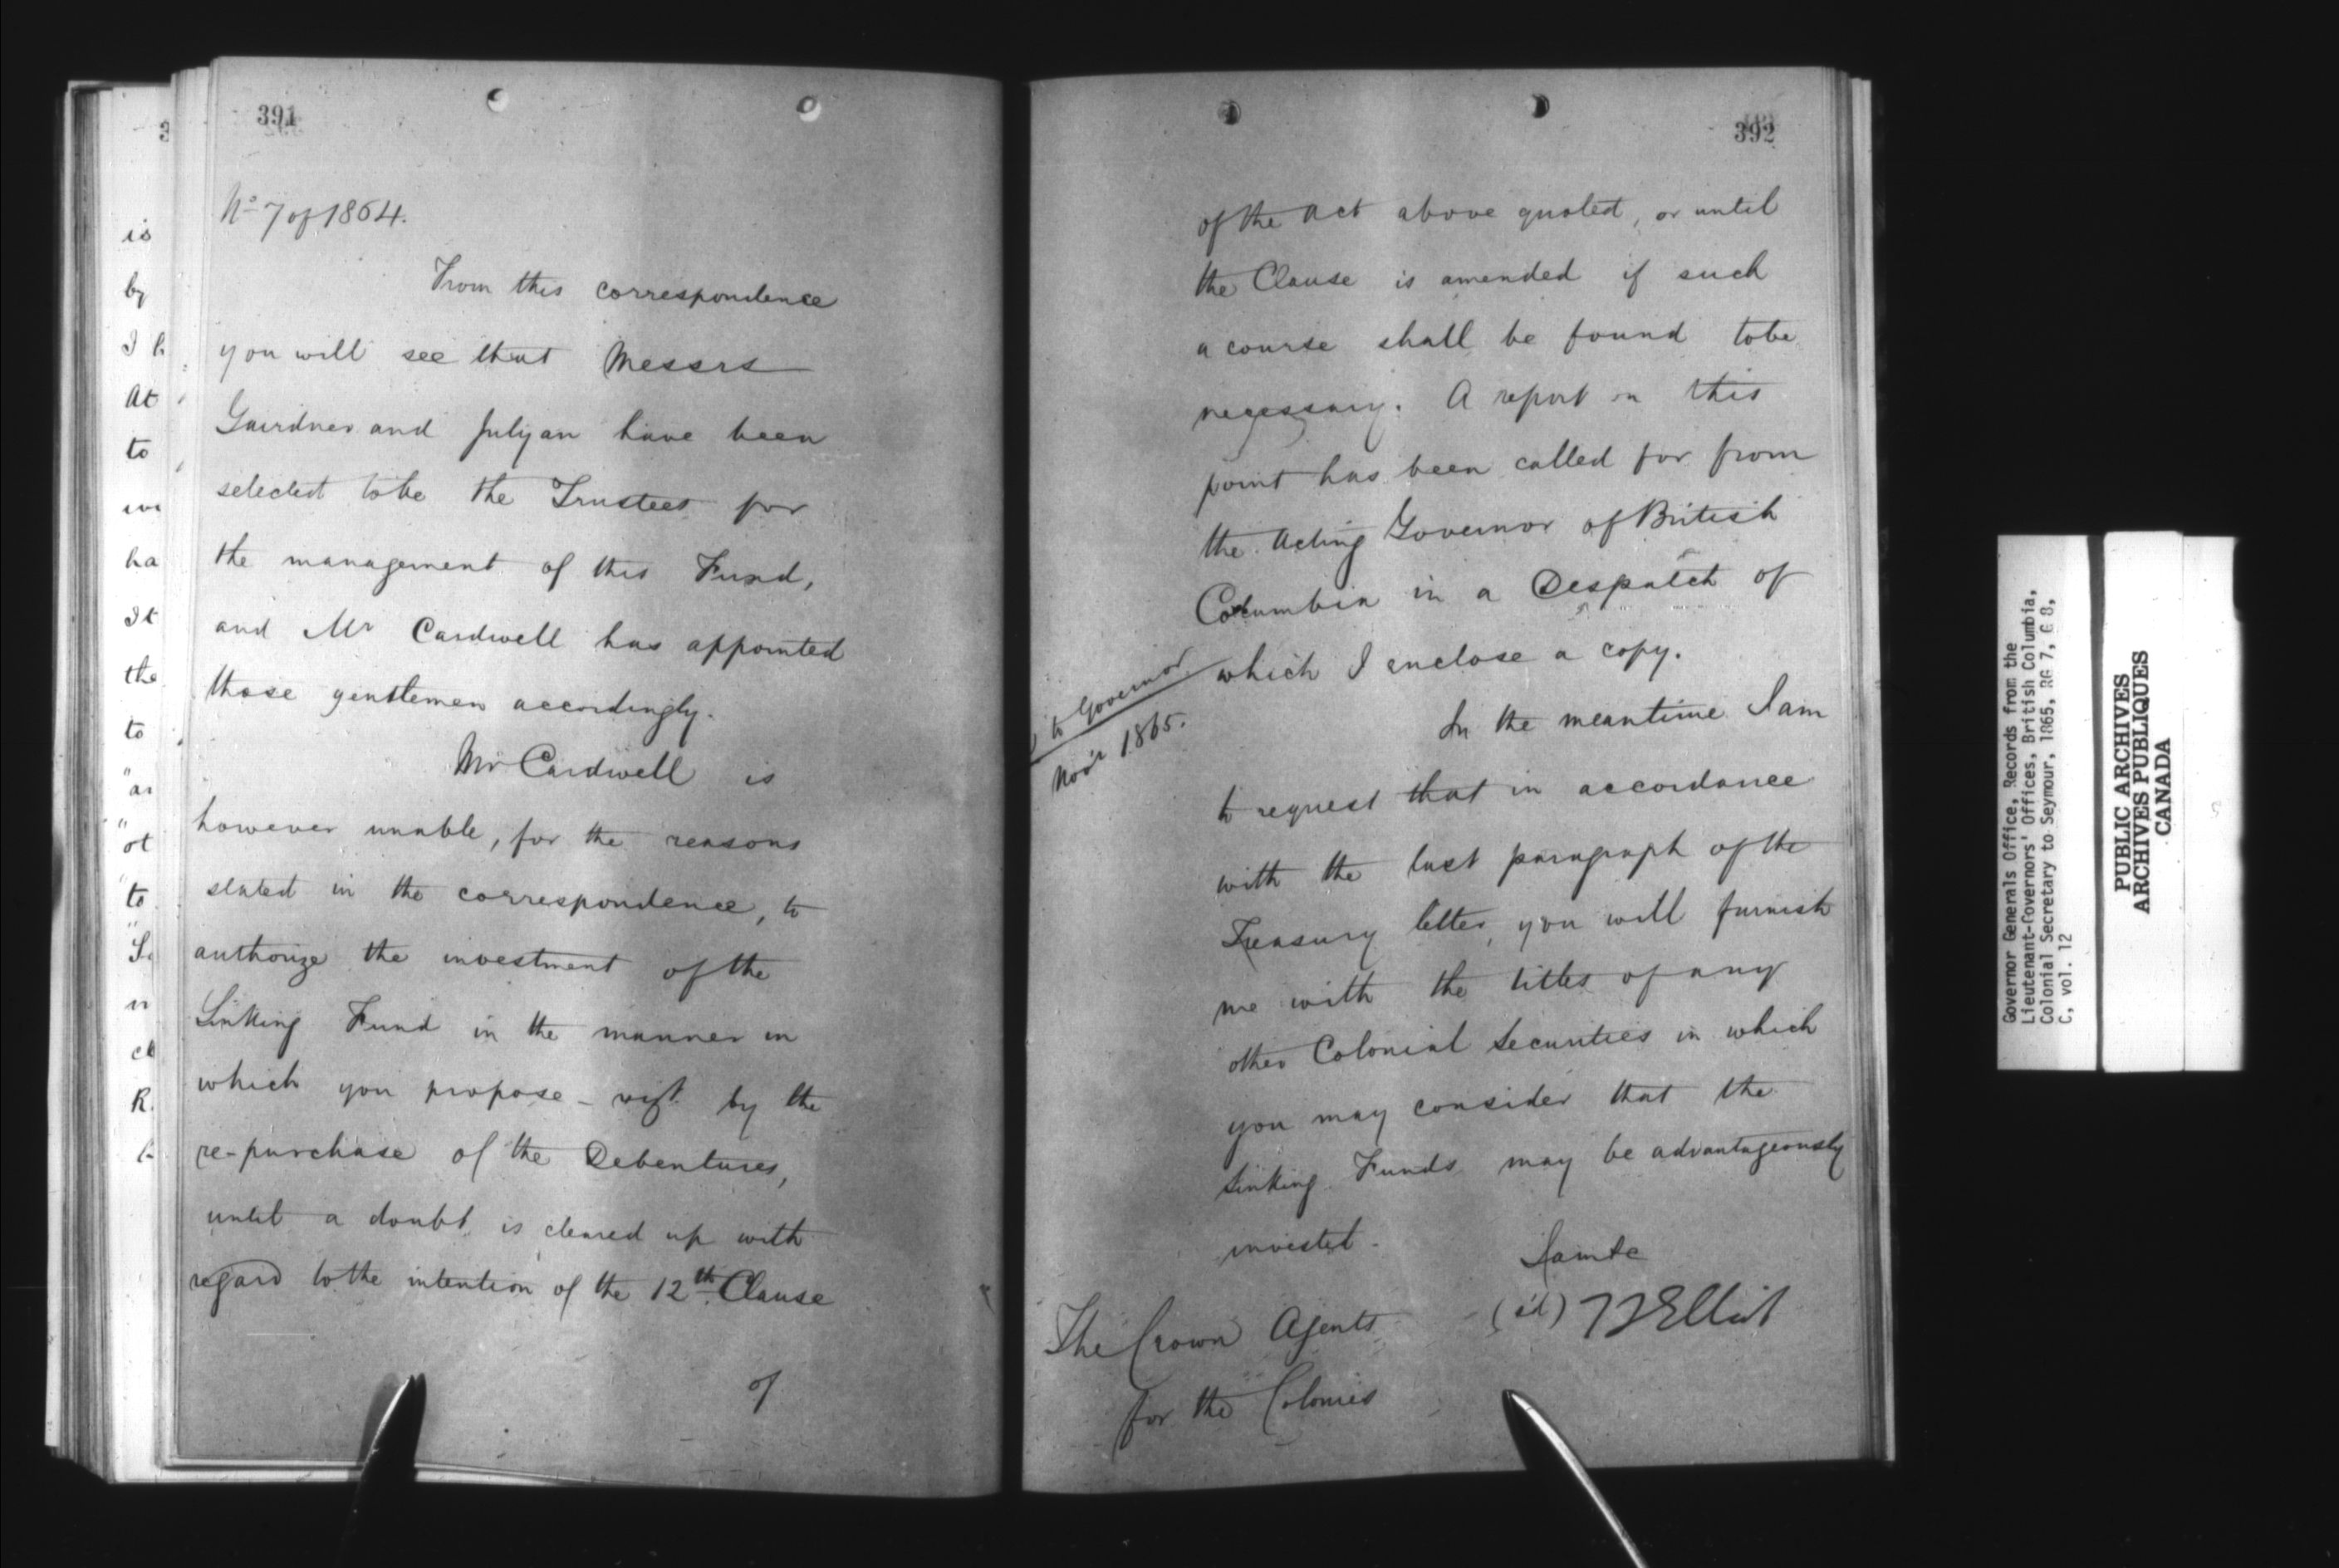 391
No 7 of 1864.
From this correspondence
you will see that Messrs
Gairdner and Julyan have been
selected to be the Trustees for
the management of this Fund,
and Mr Cardwell has appointed
those gentlemen accordingly.
Mr Cardwell is
however unable, for the reasons
stated in the correspondence, to
authorize the investment of the
Sinking Fund in the manner in
which you propose - vizt by the
re-purchase of the Debentures,
until a doubt is cleared up with
regard to the intention of the 12th Clause
of
is
by
I h
At
to
ha
It
the
to
"ot
"to
R.
392
of the Act above quoted, or until
the Clause is amended if such
a course shall be found to be
necessary. A report on this
point has been called for from
the Acting Governor of British
Columbia in a Despatch of
which I enclose a copy.
to Governor
Novr 1865.
In the meantime I am
to request that in accordance
with the last paragraph of the
Treasury letter, you will furnish
me with the titles of any
other Colonial Securities in which
you may consider that the
Sinking Funds may be advantageously
invested.
I am &c
(sd) T F Elliot
The Crown Agents
for the Colonies
Governor Generals Office, Records from the
Lieutenant-Governors' Offices, British Columbia,
Colonial Secretary to Seymour, 1865, RG 7, G 8,
C, vol. 12
PUBLIC ARCHIVES
ARCHIVES PUBLIQUES
CANADA